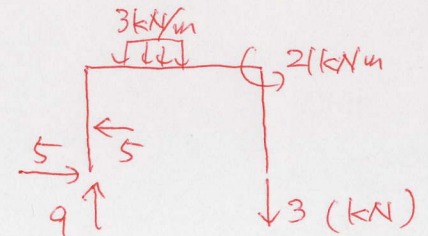 3kN/m
21kNm
5
5
9
3 (kN)